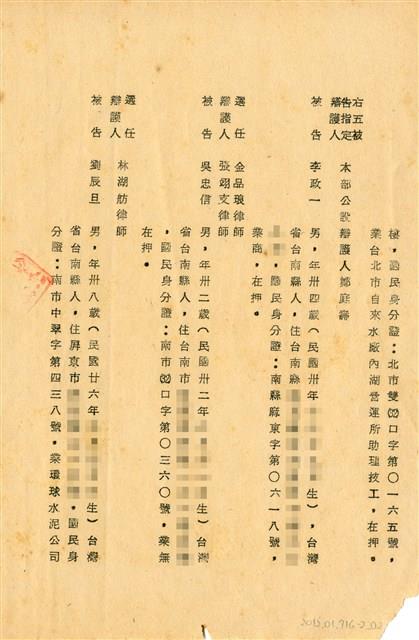 極，國民身分證：北市雙(図)口字第〇一六五號，
業台北市自來水廠內湖營運所助理技工，在押。
右五被
告指定
辯護人 本部公設辯護人鄭庭壽
被告 李政一 男，年卅四歲（民國卅年 生），台灣
省台南縣人，住台南縣
，國民身分證：南縣麻東字第〇六一八號，
業商，在押。
選任
辯護人 金品琅律師
張翊支律師
被告 吳忠信 男，年卅二歲（民國卅二年 生）台灣
省台南縣人，住台南市
，國民身分證：南市 口字第〇三六〇號，業無
在押。
選任
辯護人 林湖舫律師
被告 劉辰旦 男，年卅八歲（民國廿六年 生）台灣
省台南縣人，住屏東市 ，國民身
分證：南市中翠字第四三八號，業環球水泥公司
2015.01.916-2_02